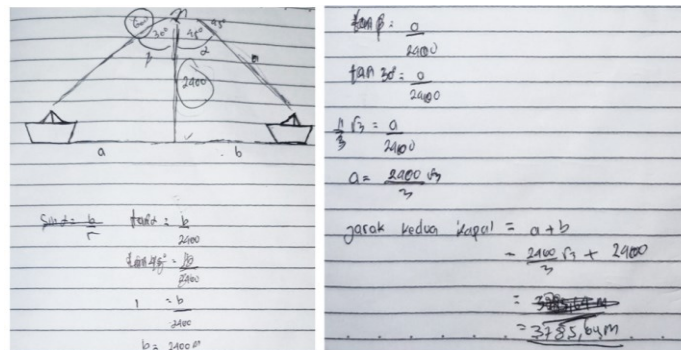 60° 30° 45° 45°
β α
2400
a b
sin α = b/r
tan α = b/2400
tan 45° = b/2400
1 = b/2400
b = 2400 m
tan β = a/2400
tan 30° = a/2400
1/3 √3 = a/2400
a = 2400/3 √3
jarak kedua kapal = a + b
= 2400/3 √3 + 2400
= 3785,64 m
= 3785,64 m